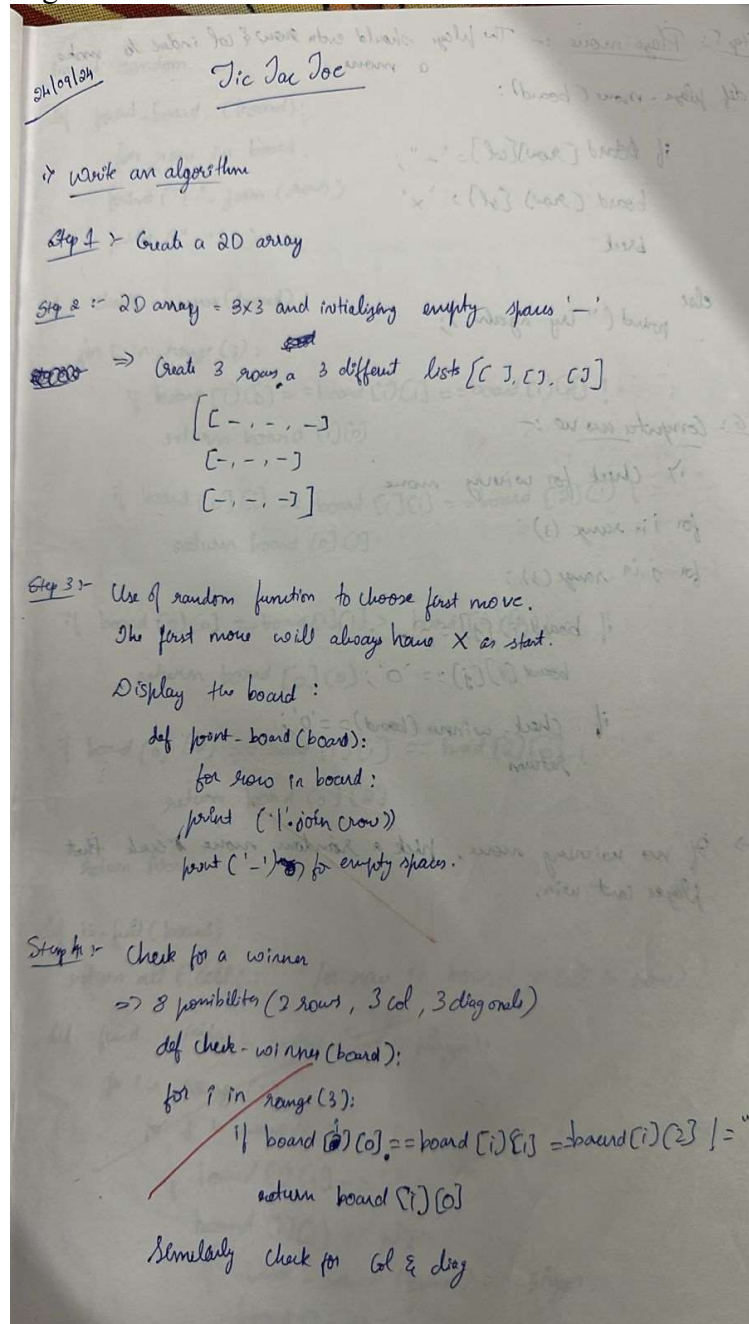 24/09/24
Tic Tac Toe
i) Write an algorithm
Step 1 :- Create a 2D array
Step 2 :- 2D array = 3x3 and initializing empty spaces '-'
=> Create 3 rows, a 3 different lists [[ ], [ ], [ ]]
[[-, -, -]
[-, -, -]
[-, -, -]]
Step 3 :- Use of random function to choose first move.
The first move will always have X as start.
Display the board :
def print-board (board):
for row in board :
print ('|'.join (row))
print ('-') for empty spaces.
Step 4 :- Check for a winner
=> 8 possibilites (2 rows, 3 col, 3 diagonals)
def check-winner (board):
for i in range (3):
if board [i][0] == board [i][1] == board [i][2] != "
return board [i][0]
Similarly check for Col & diag